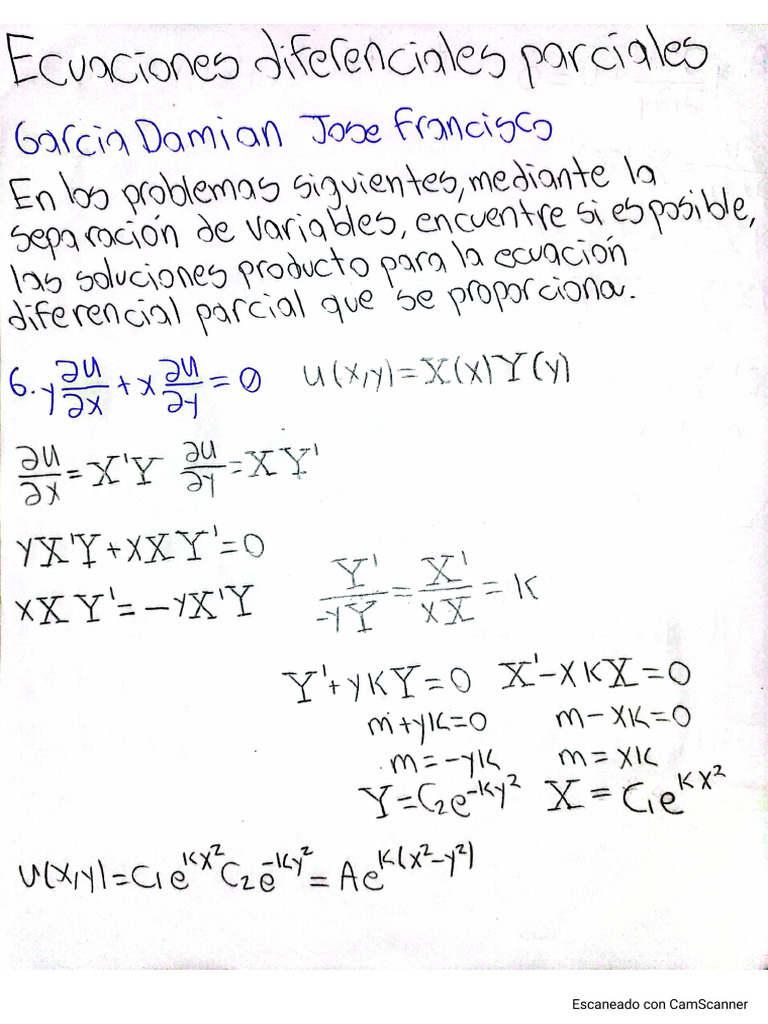 Ecuaciones diferenciales parciales
Garcia Damian Jose Francisco
En los problemas siguientes, mediante la
separación de variables, encuentre si es posible,
las soluciones producto para la ecuación
diferencial parcial que se proporciona.
6. y ∂u/∂x + x ∂u/∂y = 0 u(x,y) = X(x)Y(y)
∂u/∂x = X'Y ∂u/∂y = XY'
yX'Y + xXY' = 0
xXY' = -yX'Y Y'/-yY = X'/xX = k
Y' + ykY = 0 X' - xkX = 0
m + yk = 0 m - xk = 0
m = -yk m = xk
Y = C₂e^-ky² X = C₁e^kx²
u(x,y) = C₁e^kx² C₂e^-ky² = Ae^k(x²-y²)
Escaneado con CamScanner